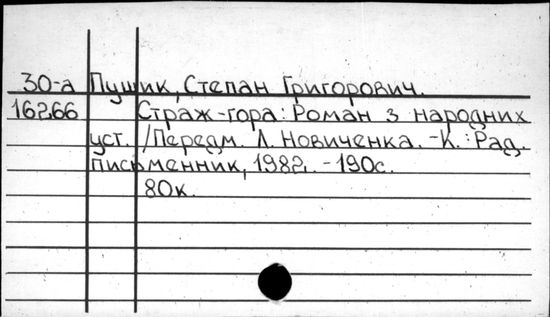 30-а Пушик, Степан Григорович.
16266 Страж-гора: Роман з народних
уст. /Передм. Л. Новиченка. -К.: Рад.
письменник, 1982. -190с.
80к.